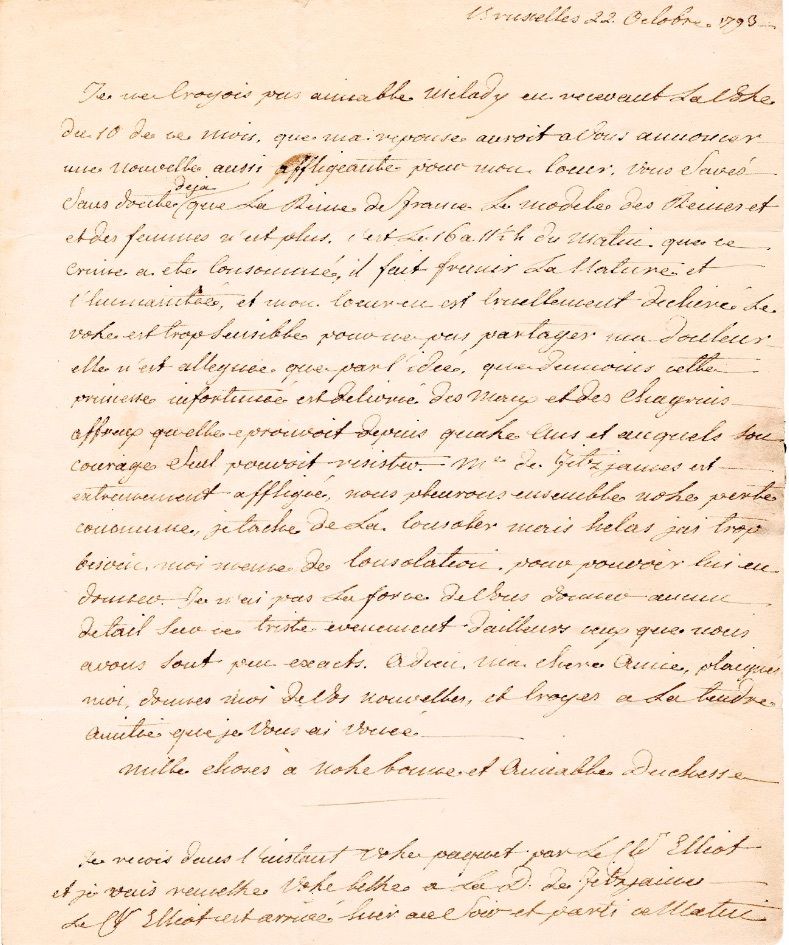 Bruxelles 22 Octobre 1793
Je ne Croyois pas aimable Milady en recevant La Votre
du 10 de ce mois, que ma reponse auroit a Vous annoncer
une nouvelle aussi affligeante pour mon Coeur. Vous Savés
Sans doute deja que La Reine de france Le modele des Reines et
et des femmes n'est plus, c'est Le 16 a 11h½ du Matin que ce
Crime a eté Consommé, il fait fremir La Nature et
l'humanitée, et mon Coeur en est Cruellement dechiré Le
votre est trop Sensible pour ne pas partager ma douleur
elle n'est allegée que par l'idée, que dumoins cette
princesse infortunée est delivrée des Maux et des Chagrins
affreux quelle eprouvoit depuis quatre Ans et auquels Son
courage Seul pouvoit resister. Me de fitzjames est
extremement affligée, nous pleurons ensemble notre perte
commune, je tache de La Consoler mais helas j'ai trop
besoin moi meme de Consolation pour pouvoir lui en
donner. Je n'ai pas La force de Vous donner aucun
detail Sur ce triste evenement d'ailleurs ceux que nous
avons Sont peu exacts. Adieu ma chere Amie, plaignés
moi, donnes moi de Vos nouvelles, et Croyes a La tendre
Amitié que je Vous ai Vouée
mille choses à notre bonne et Aimable Duchesse
Je recois dans l'instant Votre paquet par Le Elliot
et je vais remettre Votre lettre a La D. de fitzjames
Le Elliot est arrivé hier au Soir et parti ce Matin